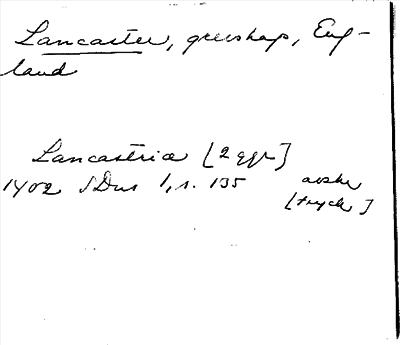 Lancaster, grevskap, Eng-
land
Lancastria [2 ggr]
1402 SDns 1, s. 135 avskr
[tryck]